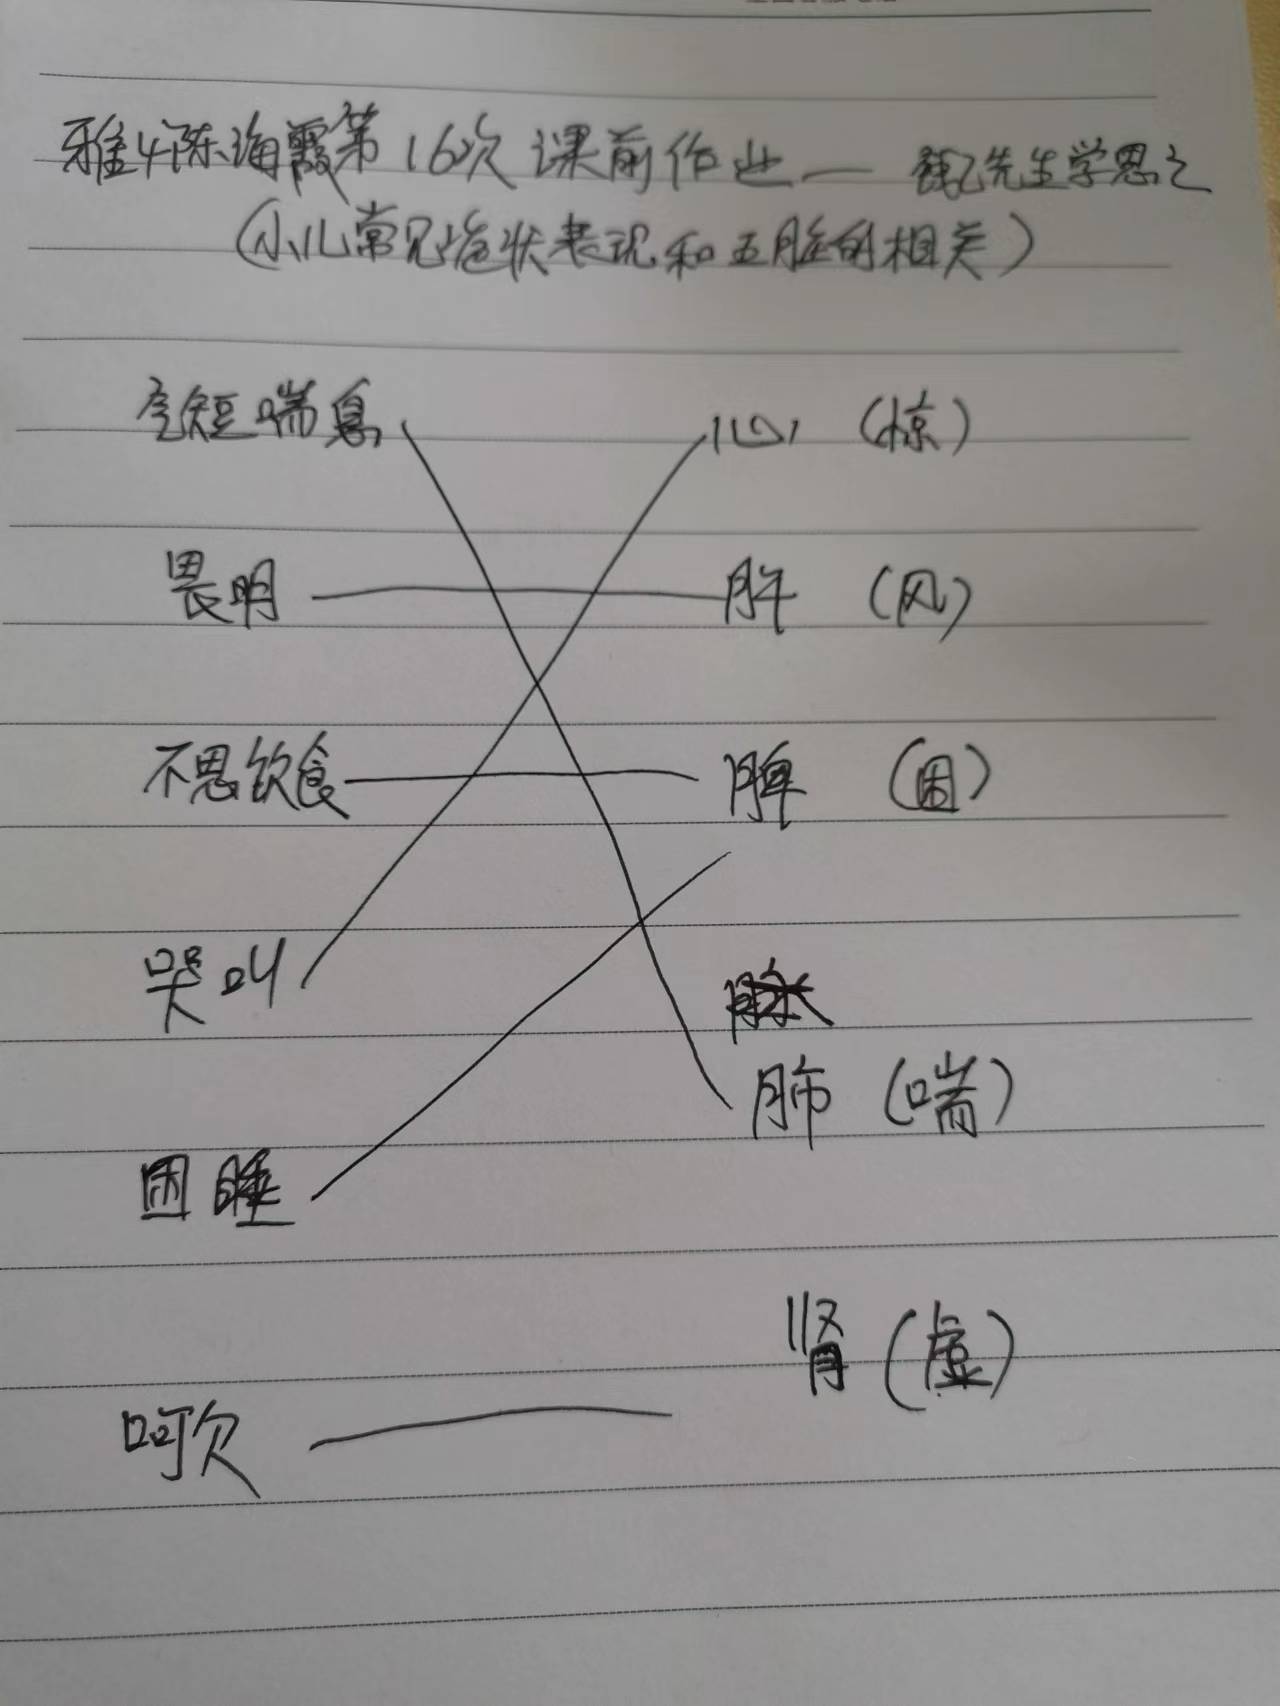 雅4陈海霞第16次课前作业— 钱乙先生学思之
(小儿常见症状表现和五脏的相关)
气短喘息 心 (惊)
畏明 肝 (风)
不思饮食 脾 (困)
哭叫
肺 (喘)
困睡
肾 (虚)
呵欠